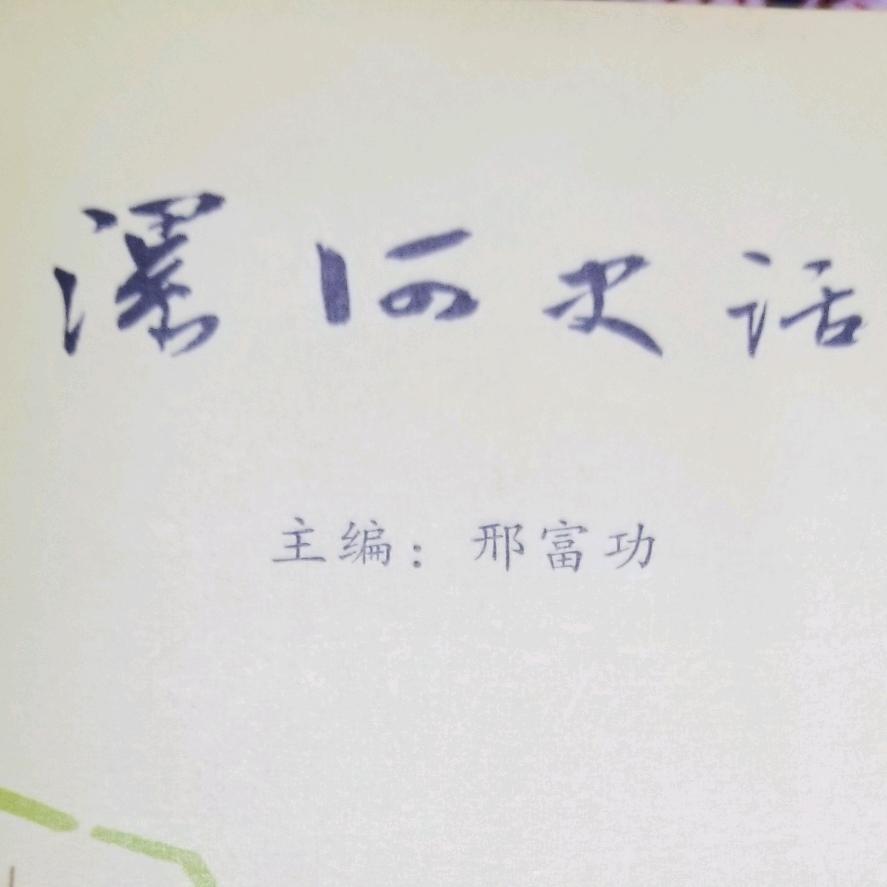 漯河史话
主编：邢富功